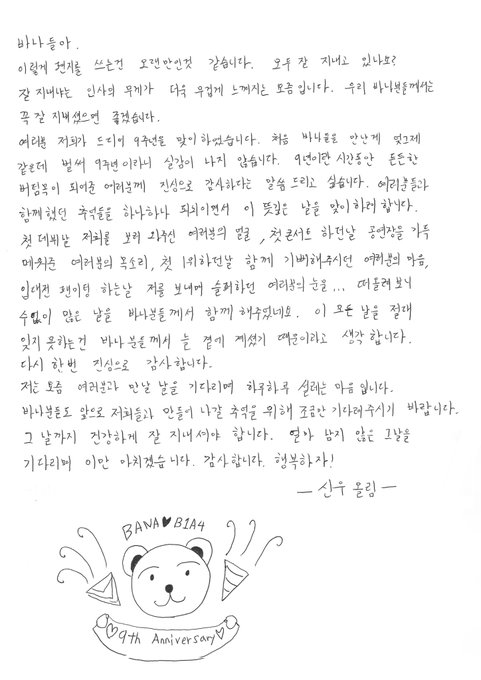 바나들아.
이렇게 편지를 쓰는건 오랜만인것 같습니다. 모두 잘 지내고 있나요?
잘 지내냐는 인사의 무게가 더욱 무겁게 느껴지는 요즘입니다. 우리 바나분들께서는
꼭 잘 지내셨으면 좋겠습니다.
여러분 저희가 드디어 9주년을 맞이하였습니다. 처음 바나들을 만난게 엊그제
같은데 벌써 9주년이라니 실감이 나지 않습니다. 9년이란 시간동안 든든한
버팀목이 되어준 여러분께 진심으로 감사하다는 말씀 드리고 싶습니다. 여러분들과
함께했던 추억들을 하나하나 되뇌이면서 이 뜻깊은 날을 맞이하려 합니다.
첫 데뷔날 저희를 보러 와주신 여러분의 얼굴, 첫콘서트 하던날 공연장을 가득
메워준 여러분의 목소리, 첫 1위하던날 함께 기뻐해주시던 여러분의 마음,
입대전 팬미팅 하는날 저를 보내며 슬퍼하던 여러분의 눈물... 떠올려 보니
수없이 많은 날을 바나분들께서 함께 해주셨네요. 이 모든 날을 절대
잊지 못하는건 바나분들께서 늘 곁에 계셨기 때문이라고 생각합니다.
다시 한번 진심으로 감사합니다.
저는 요즘 여러분과 만날 날을 기다리며 하루하루 설레는 마음입니다.
바나분들도 앞으로 저희들과 만들어 나갈 추억을 위해 조금만 기다려주시기 바랍니다.
그 날까지 건강하게 잘 지내셔야 합니다. 얼마 남지 않은 그날을
기다리며 이만 마치겠습니다. 감사합니다. 행복하자!
- 신우 올림 -
BANA♥B1A4
♡9th Anniversary♡